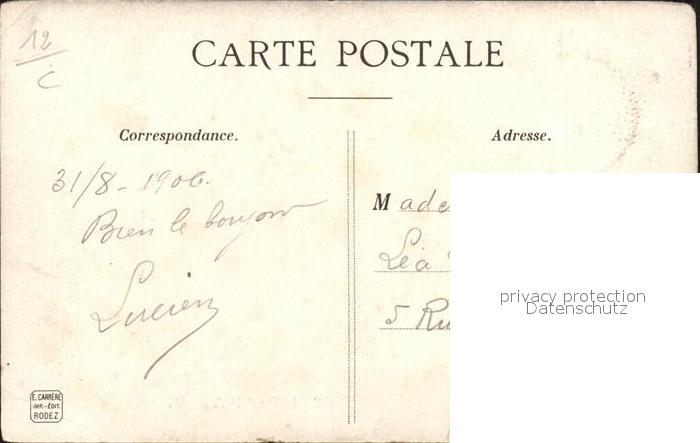 12
C
CARTE POSTALE
Correspondance.
Adresse.
31/8 - 1906.
Bien le bonjour
Lucien
M ade
Léa
5 Ru
privacy protection
Datenschutz
E. CARRÈRE
IMP.-ÉDIT.
RODEZ